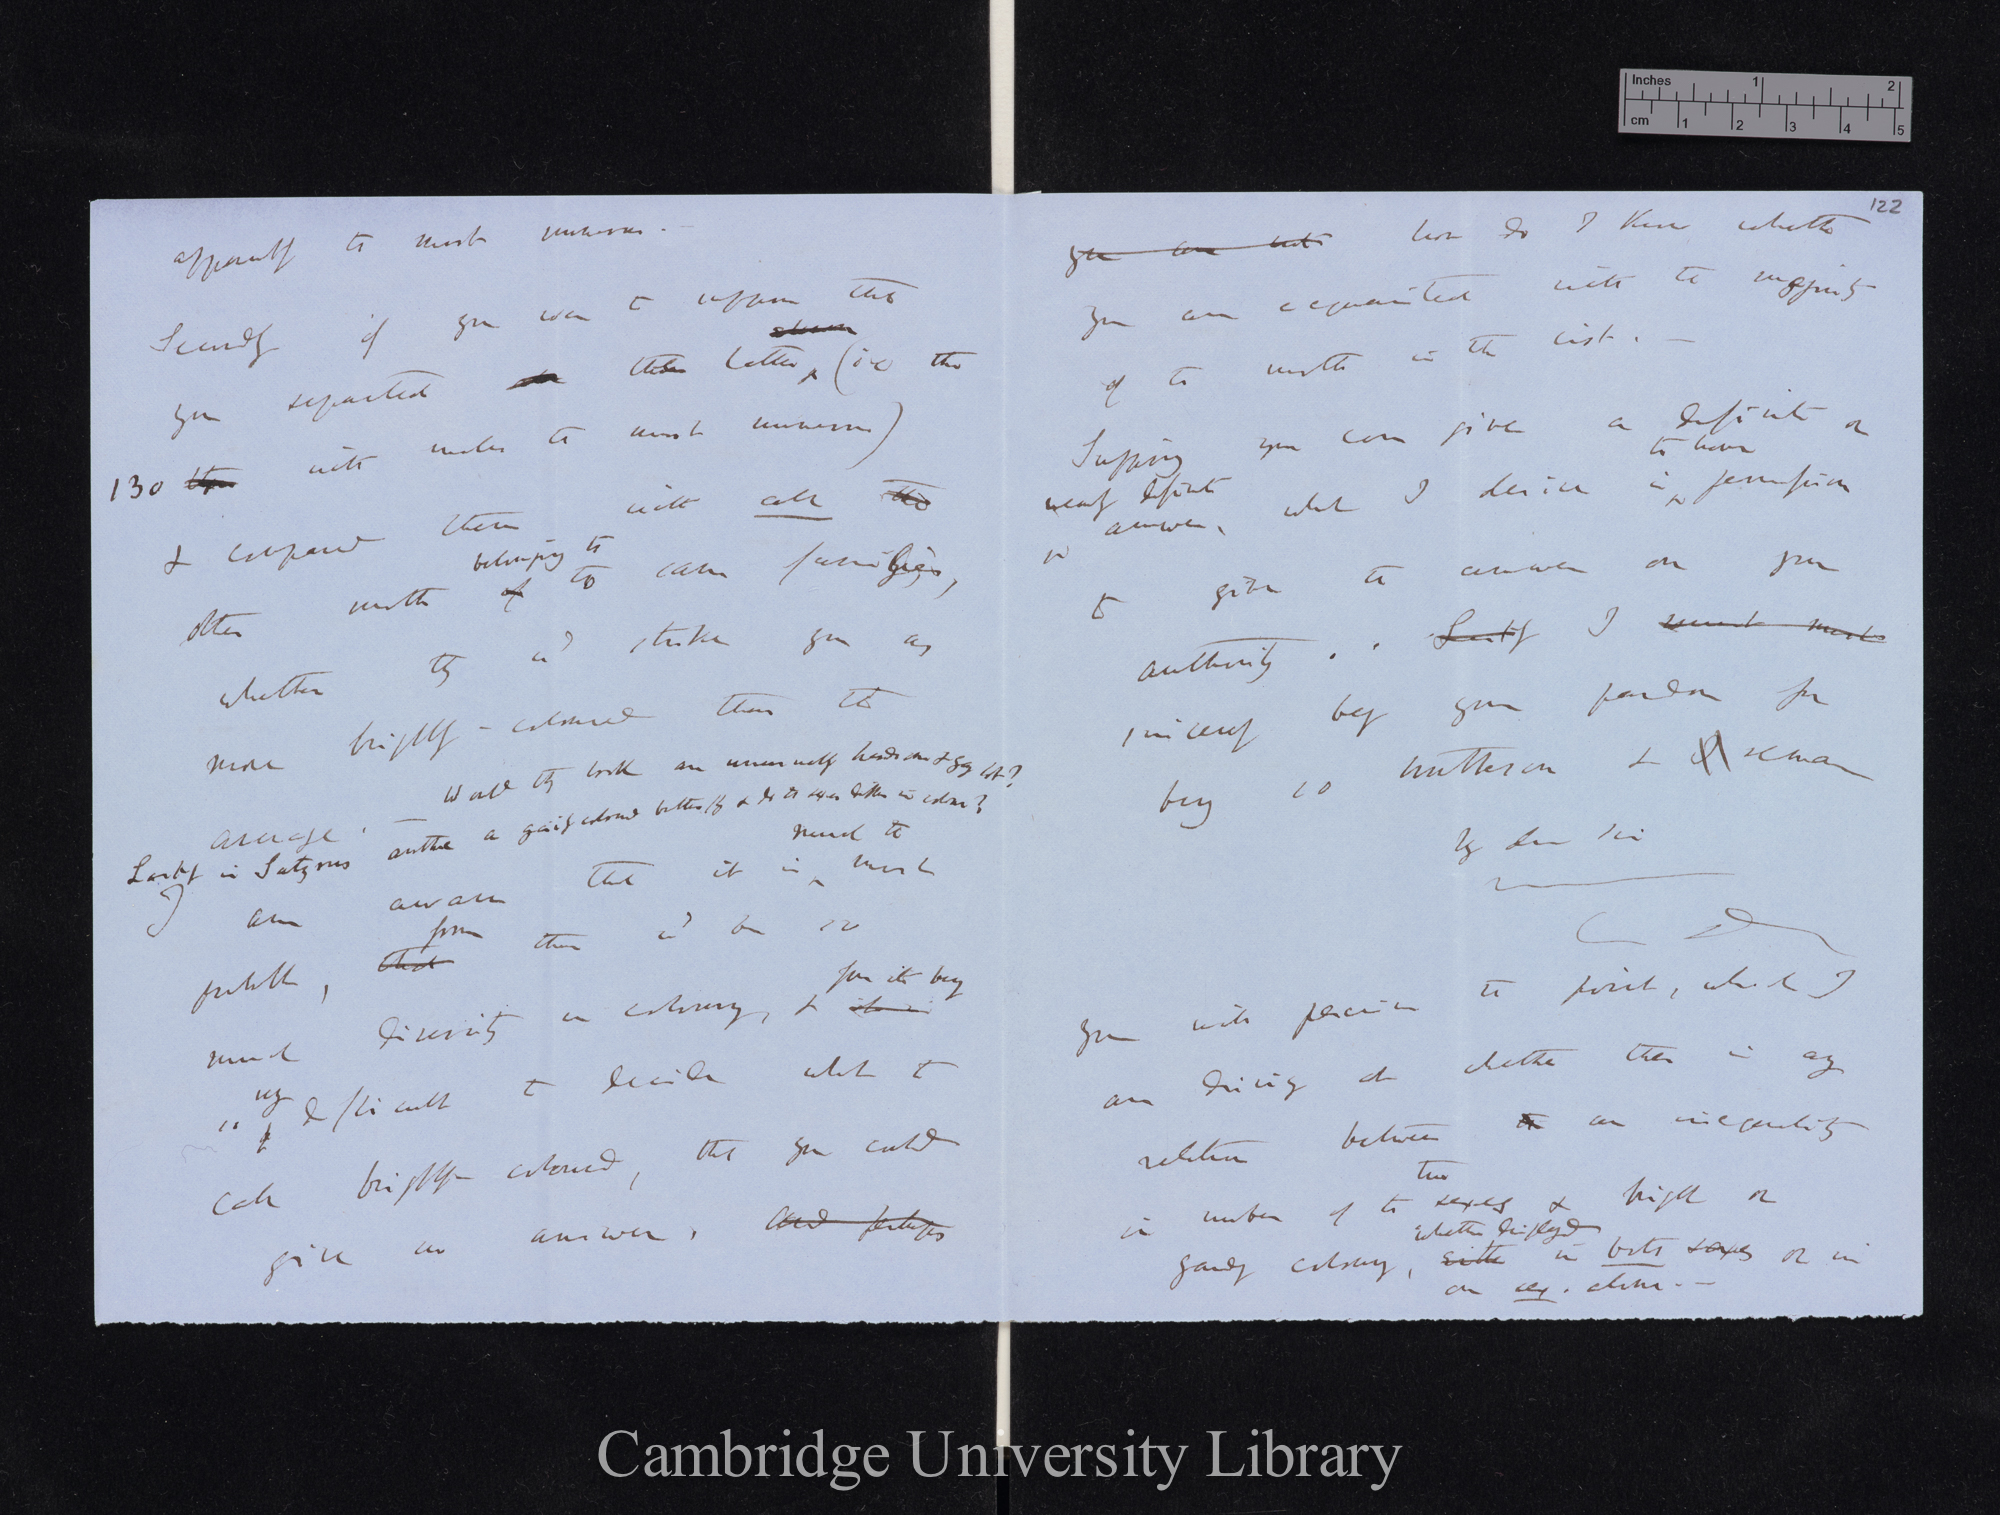 apparently the most numerous. —
Secondly if you were to suppose that
you separated these latter, (ie the
shown
130 with males the most numerous)
& compared them with all the
other moths of the same families,
belonging to
whether they wd strike you as
more brightly-coloured than the
average. — Would they look an unusually handsome & gay lot?
Lastly in Satyrus another a gaily coloured butterfly & do the sexes differ in colour?
I am aware that it is most
much the
probable, that there wd be so
from
much diversity in colouring, & it is
from its being
so difficult to decide what to
very
call brightly coloured, that you could
give no answer. and perhaps
122
you are not how do I know whether
you are acquainted with the majority
of the moths in the list. —
Supposing you can give a definite or
nearly definite answer, what I desire is permission
to have
to give the answer on your
authority. . Lastly I must most
sincerely beg your pardon for
being so troublesome & remain
My dear Sir
C D
you will perceive the point, which I
am driving at whether there is any
relation between the an inequality
in number of the sexes & bright or
two
gaudy colouring, either in both sexes or in
whether displayed
one sex. alone. —
Inches 1 2
cm 1 2 3 4 5
Cambridge University Library